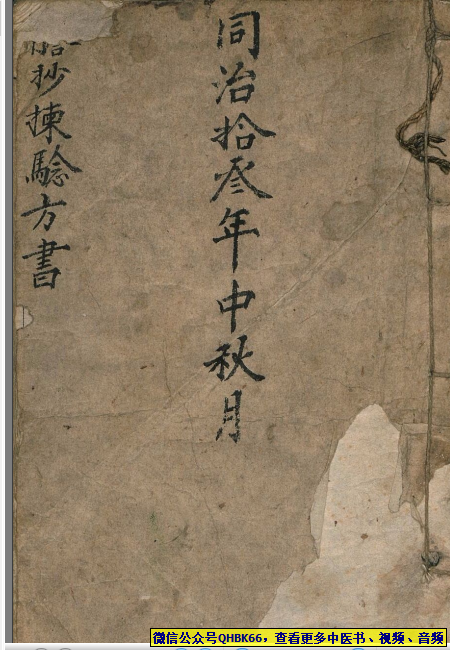 同治拾参年中秋月
抄揀騐方書
微信公众号QHBK66，查看更多中医书、视频、音频